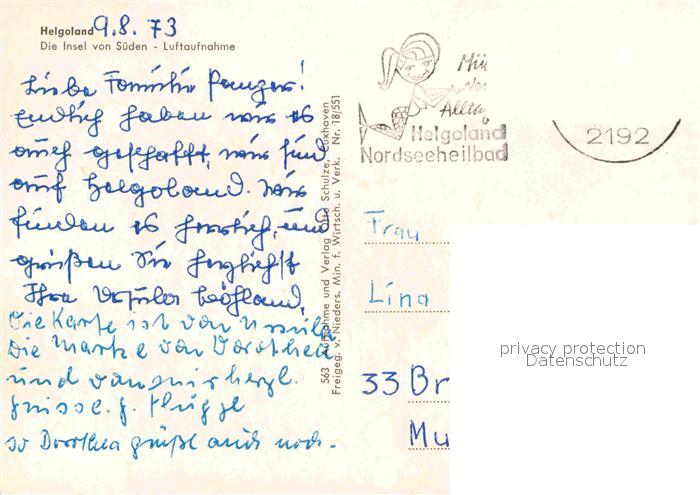 Helgoland 9.8.73
Die Insel von Süden - Luftaufnahme
Liebe Familie
Endlich haben wir es
auch geschafft, wir sind
auf Helgoland. Wir
finden es herrlich, und
grüßen Sie herzlichst
Ihre Ursula
Die Karte ist von Ursula
Die Marke von Dorothea
und von mir herzl.
Grüsse.
Dorothea grüßt auch noch.
563 Aufnahme und Verlag Otto Schulze, Cuxhaven
Freigeg. v. Nieders. Min. f. Wirtsch. u. Verk. Nr. 18/551
Allta
Helgoland
Nordseeheilbad
2192
Frau
Lina
33 Br
Mu
privacy protection
Datenschutz